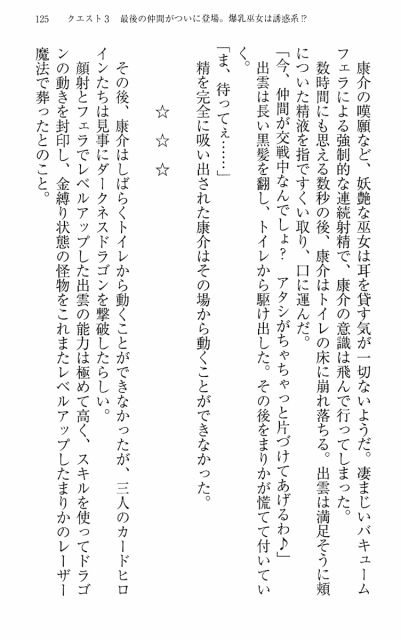 125　クエスト3　最後の仲間がついに登場。爆乳巫女は誘惑系!?
康介の嘆願など、妖艶な巫女は耳を貸す気が一切ないようだ。凄まじいバキューム
フェラによる強制的な連続射精で、康介の意識は飛んで行ってしまった。
数時間にも思える数秒の後、康介はトイレの床に崩れ落ちる。出雲は満足そうに頬
についた精液を指ですくい取り、口に運んだ。
「今、仲間が交戦中なんでしょ？　アタシがちゃちゃっと片づけてあげるわ♪」
出雲は長い黒髪を翻し、トイレから駆け出した。その後をまりかが慌てて付いてい
く。
「ま、待ってぇ……」
精を完全に吸い出された康介はその場から動くことができなかった。
☆　☆　☆
その後、康介はしばらくトイレから動くことができなかったが、三人のカードヒロ
インたちは見事にダークネスドラゴンを撃破したらしい。
顔射とフェラでレベルアップした出雲の能力は極めて高く、スキルを使ってドラゴ
ンの動きを封印し、金縛り状態の怪物をこれまたレベルアップしたまりかのレーザー
魔法で葬ったとのこと。